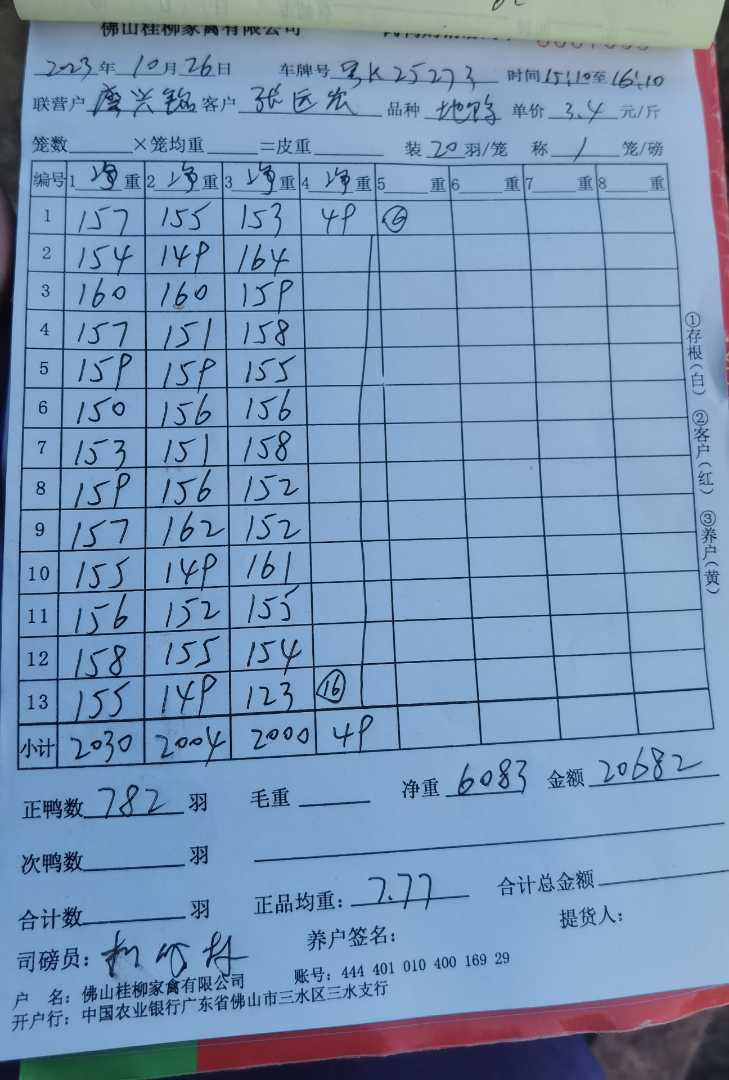 佛山桂柳家禽有限公司
2023年10月26日 车牌号 粤K25273 时间15:10至16:10
联营户 客户 品种 单价 3.4 元/斤
笼数 ×笼均重 =皮重 装 20 羽/笼 称 1 笼/磅
编号 1 净 重 2 净 重 3 净 重 4 净 重 5 重 6 重 7 重 8 重
1 157 155 153 49 ⑥
2 154 149 164
3 160 160 159
4 157 151 158
5 159 159 155
6 150 156 156
7 153 151 158
8 159 156 152
9 157 162 152
10 155 149 161
11 156 152 155
12 158 155 154
13 155 149 123 ⑯
小计 2030 2004 2000 49
正鸭数 782 羽 毛重 净重 6083 金额 20682
次鸭数 羽
合计数 羽 正品均重: 7.77 合计总金额
司磅员: 养户签名: 提货人:
户 名: 佛山桂柳家禽有限公司 账号: 444 401 010 400 169 29
开户行: 中国农业银行广东省佛山市三水区三水支行
①存根(白) ②客户(红) ③养户(黄)